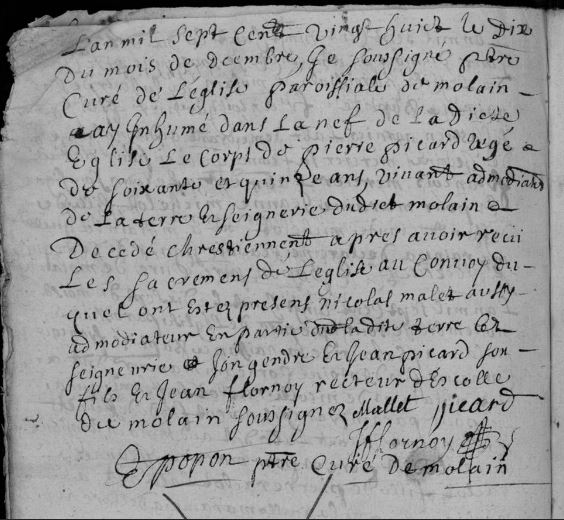 Lan mil sept cent vingt huict le dix
du mois de decembre, Je soussigné ptre
Curé de Léglise paroissiale de molain
ay Inhumé dans La nef de La dicte
Eglise Le Corps de pierre picard agé
de soixante et quinze ans, vivant admodiateur
de La terre et seignerie dudict molain
Decedé chrestiennement apres avoir recu
Les sacremens de Leglise au Convoy du-
quel ont estez presens nicolas malet aussy
admodiateur En partie de ladite terre et
seigneurie et son gendre Et Jean picard son
fils Et Jean flornoy recteur descolle
de molain soussignez Mallet picard
J flornoy
popon ptre Curé De molain